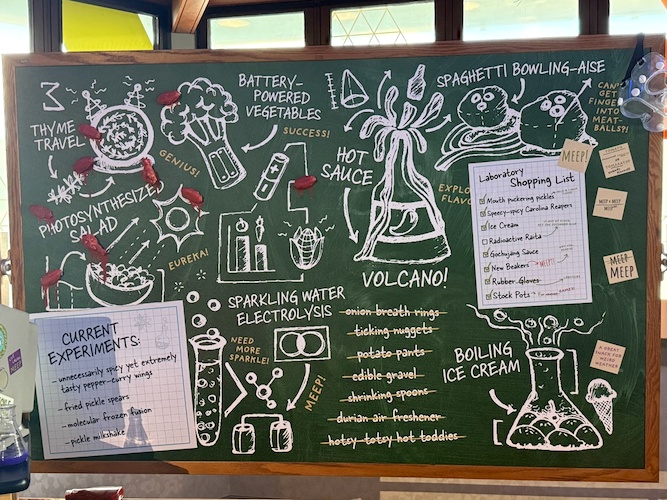 THYME
TRAVEL
GENIUS!
PHOTOSYNTHESIZED
SALAD
EUREKA!
BATTERY-
POWERED
VEGETABLES
SUCCESS!
HOT
SAUCE
VOLCANO!
SPAGHETTI BOWLING-AISE
CAN'T
GET
FINGERS
INTO
MEAT-
BALLS?!
Laboratory
Shopping List
Mouth puckering pickles
Speecy-spicy Carolina Reapers
Ice Cream
Radioactive Raita
Gochujang Sauce
New Beakers
MEEP!
Rubber Gloves
Stock Pots
MEEP!
MEEP & MEEP
MEEP
MEEP
A GREAT
SNACK FOR
WEIRD
WEATHER
CURRENT
EXPERIMENTS:
- unnecessarily spicy yet extremely
tasty pepper-curry wings
- fried pickle spears
- molecular frozen fusion
- pickle milkshake
SPARKLING WATER
ELECTROLYSIS
NEED
MORE
SPARKLE!
MEEP!
onion breath rings
ticking nuggets
potato pants
edible gravel
shrinking spoons
durian air freshener
hotsy-totsy hot toddies
BOILING
ICE CREAM